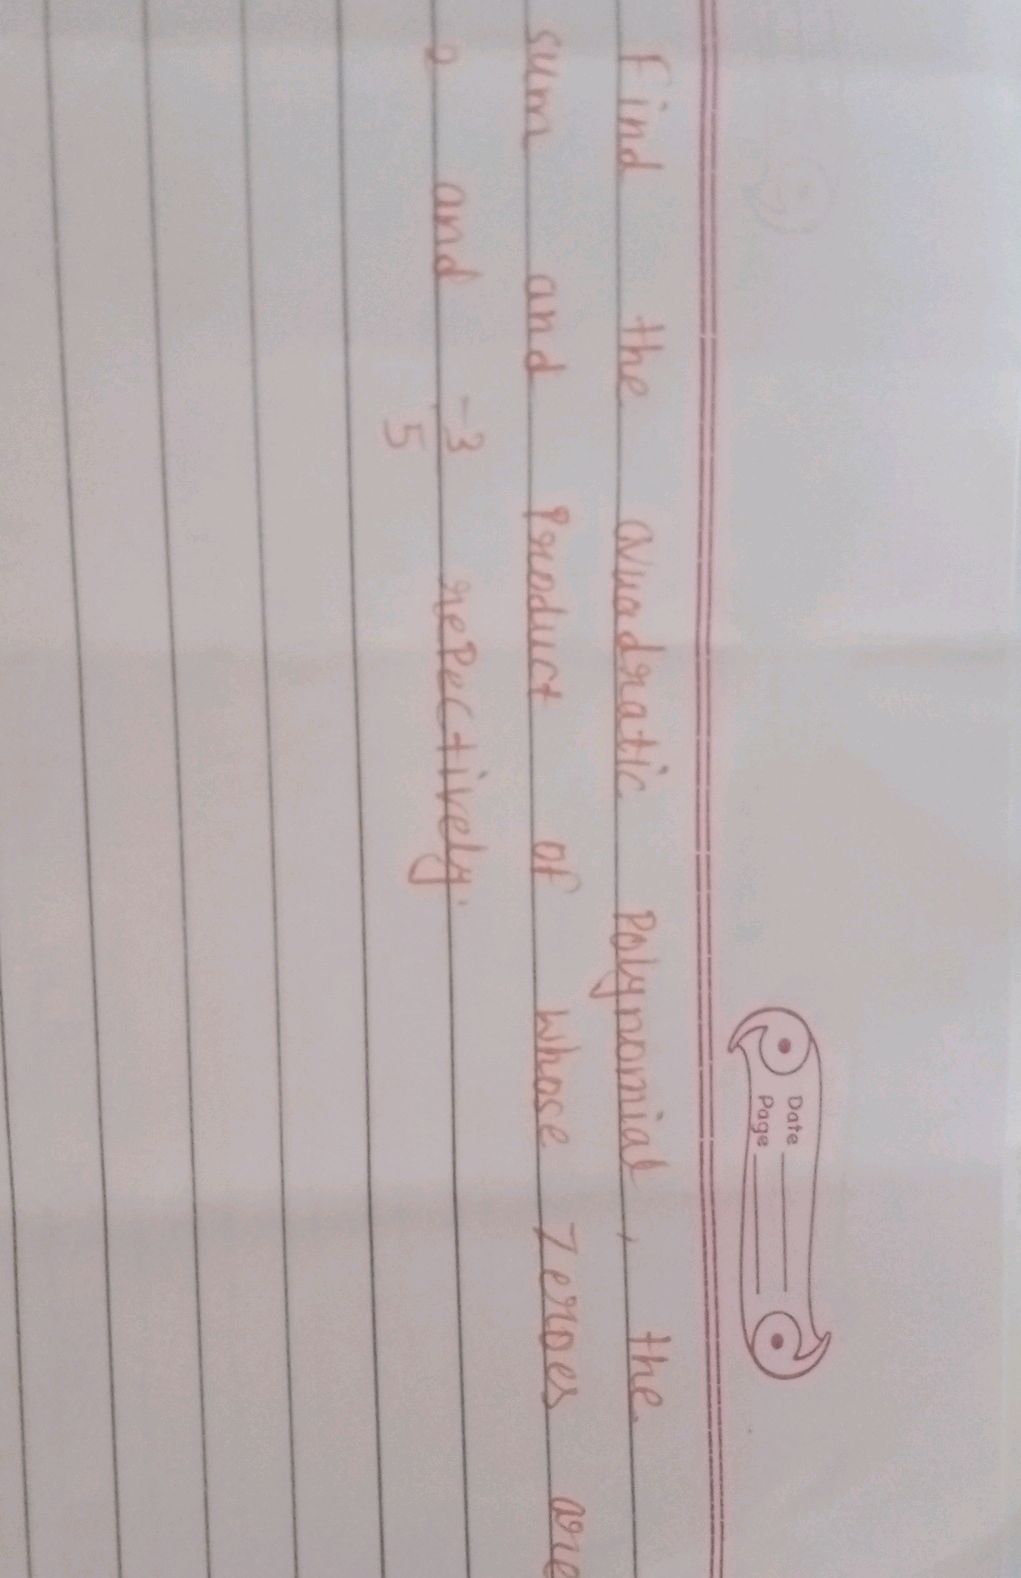 Date
Page
Find the quadratic Polynomial, the
sum and Product of whose Zeroes are
2 and -3/5 rePectively.